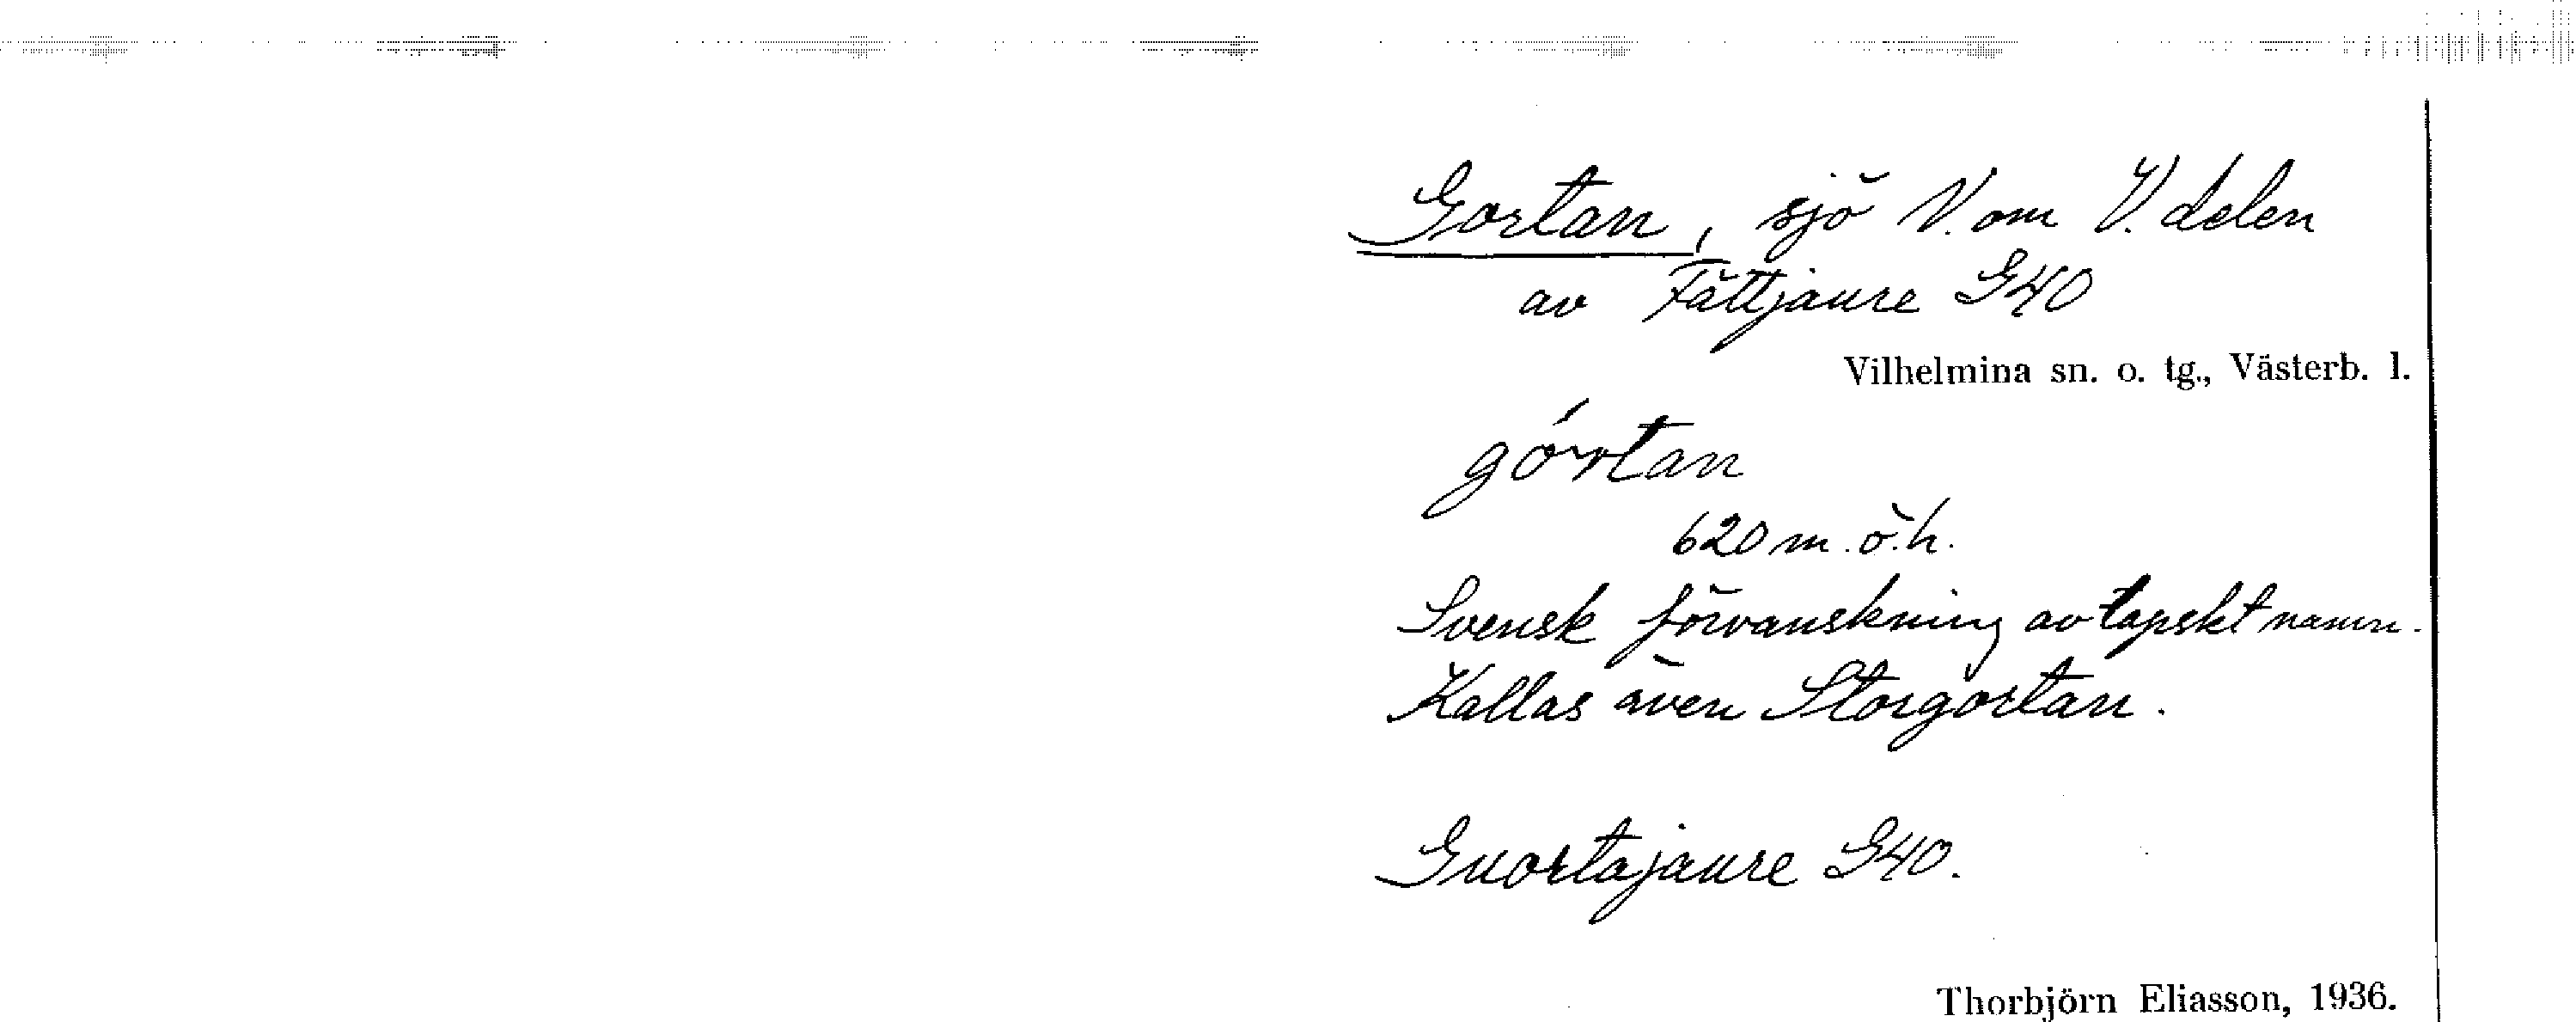 Gortan, sjö V. om V. delen
av Fättjaure G40
Vilhelmina sn. o. tg., Västerb. l.
górtan
620 m. ö. h.
Svensk förvanskning av lapskt namn.
Kallas även Storgortan.
Guortajaure G40.
Thorbjörn Eliasson, 1936.